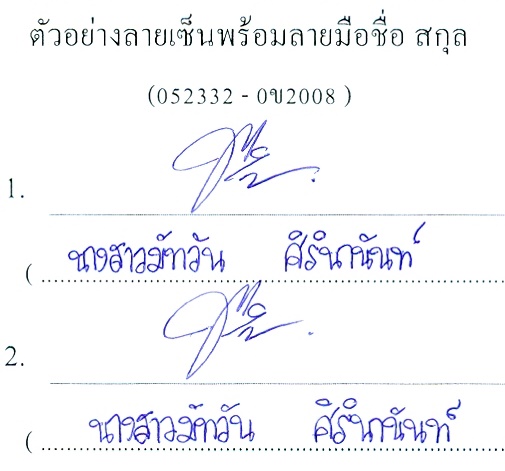 ตัวอย่างลายเซ็นพร้อมลายมือชื่อ สกุล
(052332 - 0ข2008 )
1.
( นางสาวมัทวัน ศิริน้านันท์
2.
( นางสาวมัทวัน ศิริน้านันท์